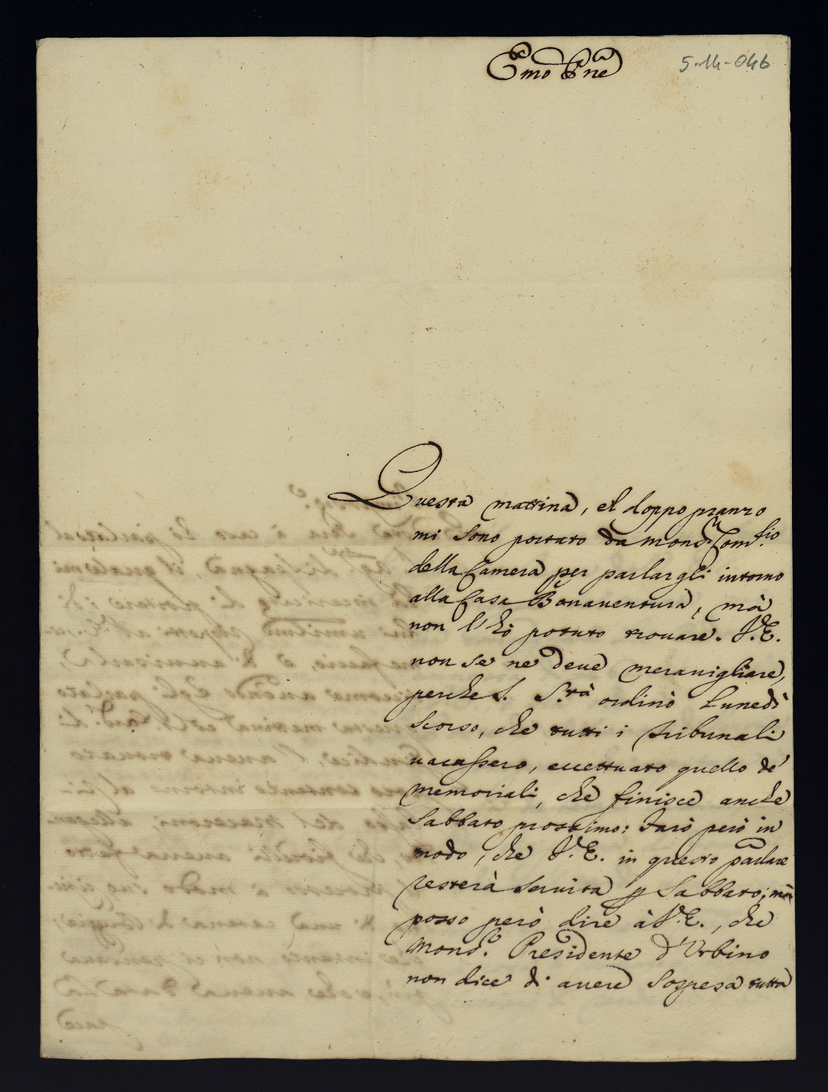 Emo Pne
5-14-046
Questa mattina, el doppo pranzo
mi sono portato da Monsr. Comrio.
della Camera per parlargli intorno
alla Casa Bonaventura, mà
non l'hò potuto trouare. V.E.
non se ne deue merauigliare,
perche S. Stà ordinò Lunedì
scorso, che tutti i Tribunali
uacassero, eccettuato quello de'
memoriali, che finisce anche
Sabbato prossimo: farò però in
modo, che V.E. in questo parlare
resterà seruita p Sabbato; mà
posso però dire à V.E., che
Monsr. Presidente d'Vrbino
non dice di auere sospesa tutta